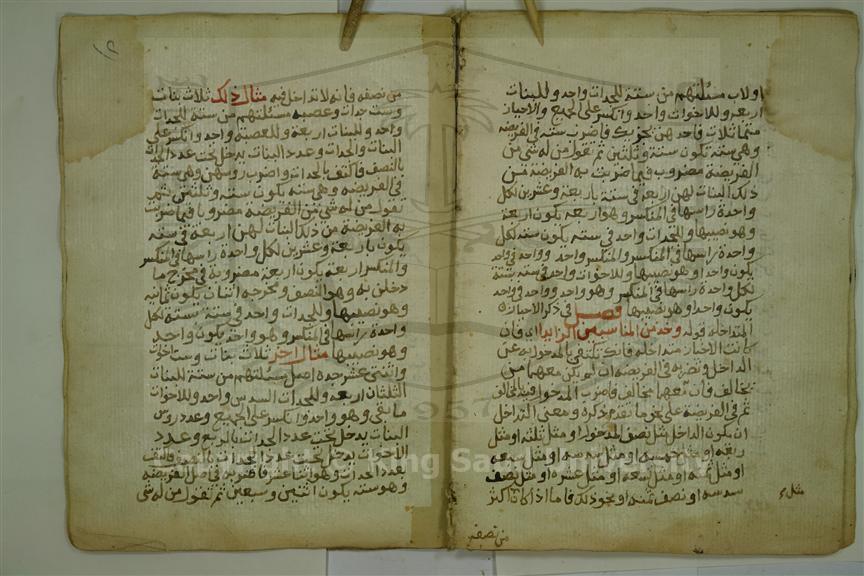 اولاب مسئلتهم من ستة للجدات واحد وللبنات
اربعه وللاخوات واحد وانكسر على الجميع والاحيان
منها ثلاث فاحدهن تجزيك فاضرب ستة في الفريضه
وهي سته تكون ستة وثلثين ثم تقول من له شي من
الفريضة مضروب فيما ضربت به الفريضة فمن
ذلك البنات لهن اربعة في ستة باربعة وعشرين لكل
واحدة راسها في المنكسر وهو اربعه يكون اربعة
وهو نصيبها وللجدات واحد في سته يكون سته لكل
واحدة راسها في المنكسر والمنكسر واحد وواحد في واحد
يكون واحد او هو نصيبها وللاخوات واحد في سته ستة
لكل واحدة راسها في المنكسر وهو واحد وواحد في واحد
يكون واحد وهو نصيبها فصل في ذكر الاحياز
المتداخله قوله وخذ من المناسبين الزايدا اي فان
كانت الاحياز متداخله فانك تكتفي بالمدخول به عن
الداخل وتضربه في الفريضه ان لم يكن معهما من
يخالف وان معهما مخالف فاضرب المدخول به في المخالف
ثم في الفريضة على نحو ما تقدم ذكره ومعنى التداخل
ان يكون الداخل مثل نصف المدخول او مثل ثلثه او مثل
ربعه او مثل خمسه او مثل سدسه او مثل سبعه
او مثل ثمنه او مثل تسعه او مثل عشره او مثل نصف
سدسه او نصف ثمنه او نحو ذلك فاما اذا كان اكثر
من نصفه
من نصفه فانه لا تداخل فيه مثال ذلك ثلاث بنات
وست جدات وعصبه مسئلتهم من ستة للجدات
واحد وللبنات اربعة وللعصبة واحد وانكسر على
البنات والجدات وعدد البنات يدخل تحت عدد الجدات
بالنصف فاكتف بالجدات واضرب روسهن وهي ستة
في الفريضه وهي سته يكون ستة وثلثين ثم
تقول من له شي من الفريضة مضروبا فيما ضربت
به الفريضة من ذلك البنات لهن اربعة في سته
يكون باربعة وعشرين لكل واحدة راسها في المنكسر
والمنكسر اربعة يكون اربعة مضروبة في مخرج ما
دخلن به وهو النصف ومخرجه اثنان يكون ثمانيه
وهو نصيبها وللجدات واحد في ستة ستة لكل
واحدة راسها في المنكسر وهو واحد يكون واحد
وهو نصيبها مثال اخر ثلاث بنات وست اخوات
واثنتى عشر جدة اصل مسئلتهم من ستة للبنات
الثلثان اربعه وللجدات السدس واحد وللاخوات
ما بقي وهو واحد وانكسر على الجميع وعدد روس
البنات يدخل تحت عدد الجدات بالربع وعدد
الاخوات يدخل تحت عدد الجدات بالنصف فاكتف
بعدد الجدات وهو اثنا عشر فاضربه في اصل الفريضه
وهو سته يكون اثنين وسبعين ثم تقول من له شي